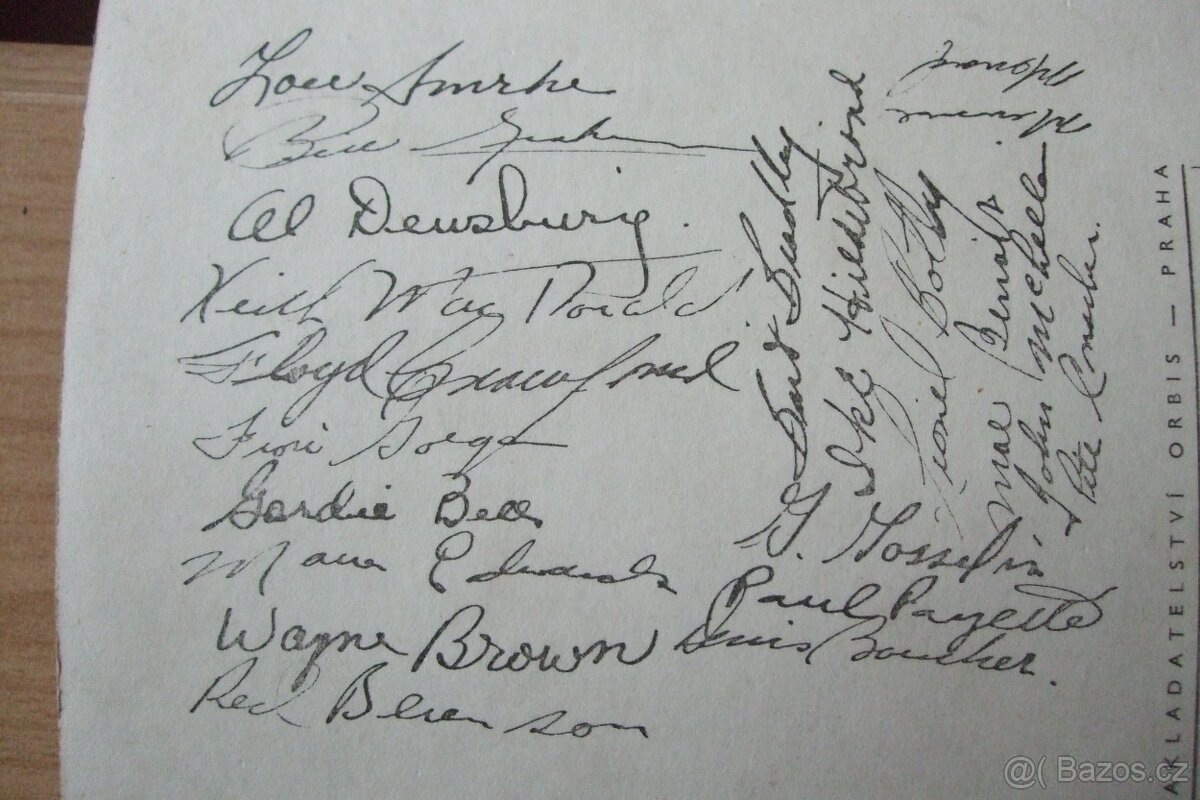 Lou Smrke
Bill Graham
Al Dewsbury.
Keith MacDonald
Floyd Crawford
Fiori Goegan
Gordie Bell
Maur Edwards
Wayne Brown
Red Berenson
David Dudley
Ike Hildebrand
Lionel Botly
Moe Benoit
John McLellan
Pete Conacher.
G. Gosselin
Paul Payette
Denis Boucher.
NAKLADATELSTVÍ ORBIS — PRAHA
@( Bazos.cz